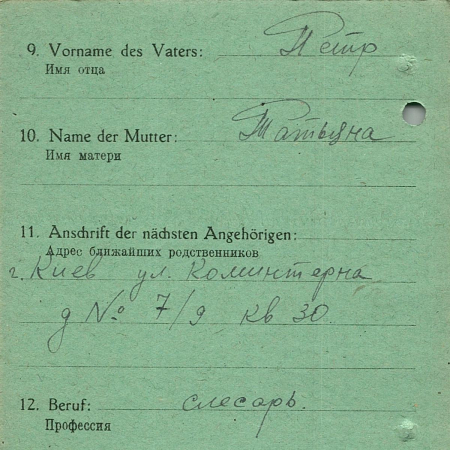 9. Vorname des Vaters: Петр
Имя отца
10. Name der Mutter: Татьяна
Имя матери
11. Anschrift der nächsten Angehörigen:
Адрес ближайших родственников
г. Киев ул. Коминтерна
д № 7/9 кв 30
12. Beruf: слесарь.
Профессия